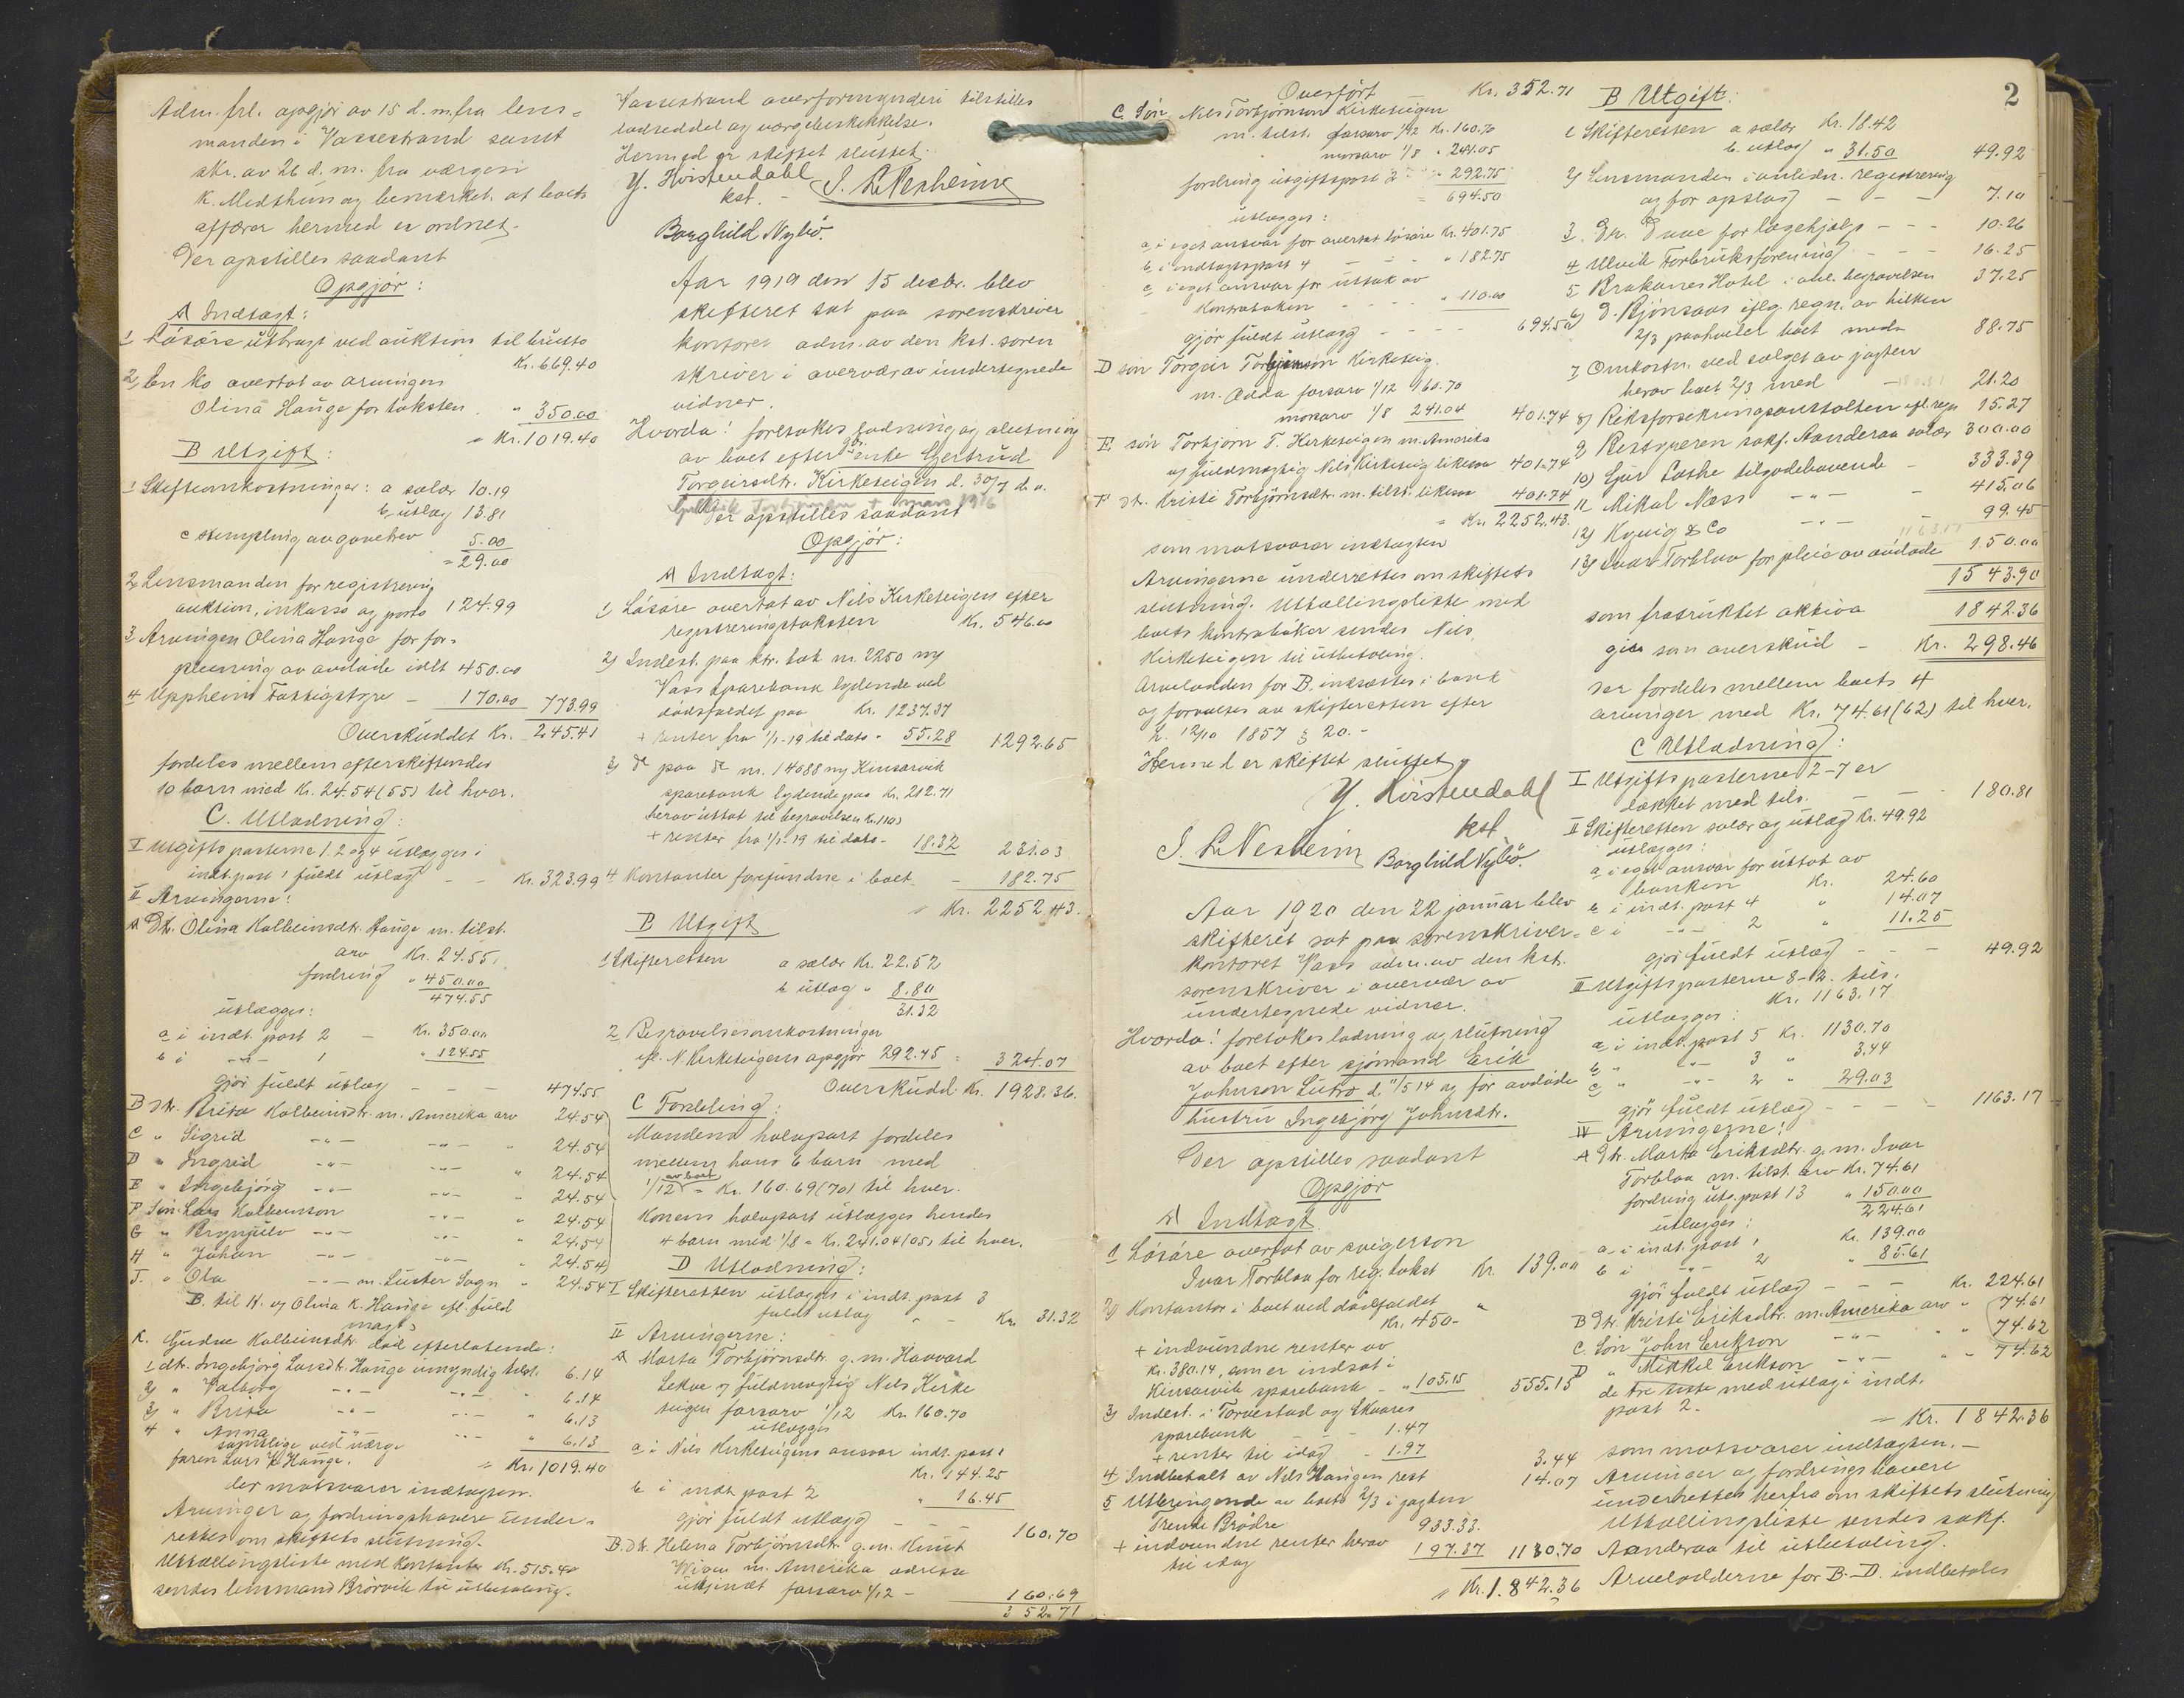 Adm. frl. opgjör av 15 d. m. fra lens-
manden i Vossestrand samt
skr. av 26 d. m. fra værgen
K. Medthun og bemerket at boets
affærer hermed er ordnet.
Der opstilles saadant
Opgjör:
A Indtægt:
1 Lösöre utbragt ved auktion til brutto
Kr. 669.40
2 En ko overtat av arvingen
Olina Hauge for taksten " 350.00
= Kr. 1019.40
B Utgift:
1 Skifteomkostninger: a salær 10.19
b utlæg 13.81
c stempling av gavebrev 5.00
= 29.00
2 Lensmanden for registrering
auktion, inkasso og porto 124.99
3 Arvingen Olina Hauge for for-
pleining av avdöde idlt 450.00
4 Uppheim Fattigstyre - 170.00 773.99
Overskuddet Kr. 245.41
fordeles mellem efterskiftendes
10 barn med Kr. 24.54 (55) til hver.
C. Utlodning:
I Utgiftsposterne 1. 2 og 4 utlægges i
indt. post 1 fuldt utlæg - - Kr. 323.99
II Arvingerne:
A Dtr. Olina Kolbeinsdtr. Hauge m. tilst.
arv Kr. 24.55
fordring " 450.00
474.55
utlægges:
a i indt. post 2 - Kr. 350.00
b i -"- 1 " 124.55
gjör fuldt utlæg - - - 474.55
B Dtr. Brita Kolbeinsdtr. m. Amerika arv 24.54
C " Sigrid -"- -"- " 24.54
D " Ingrid -"- -"- " 24.54
E " Ingebjörg -"- -"- " 24.54
F Sön Lars Kolbeinson -"- " 24.54
G " Brynjulv -"- -"- " 24.54
H " Johan -"- -"- " 24.54
J. " Ola -"- m. Luster Sogn " 24.54
B. til H. og Olina K. Hauge efl. fuld
magt.
K. Gudve Kolbeinsdtr. död efterlatende:
1 dtr. Ingebjörg Larsdtr. Hauge umyndig tilst. 6.14
2) " Valborg -"- -"- " 6.14
3) " Brita -"- -"- " 6.13
4 " Anna -"- -"- " 6.13
samtlige ved værge
faren Lars K. Hauge.
= Kr. 1019.40
der motsvarer indtægten.
Arvinger og fordringshavere under-
rettes om skiftets slutning.
Utstællingsliste med kontanter Kr. 515.40
sendes lensmand Brörvik til utbetaling.
Vossestrand overformynderi tilstilles
lodseddel og værgebeskikkelse.
Hermed er skiftet sluttet.
Y. Hoistendahl
kst. - S. L. Nesheim
Borghild Nybö.
Aar 1919 den 15 decbr. blev
skifteret sat paa sorenskriver
kontoret adm. av den kst. soren
skriver i overvær av undertegnede
vidner.
Hvorda! foretokes lodning og slutning
av boet efter gbr. enke Gertrud
Torgeirsdtr. Kirketeigen d. 30/7 d. a.
Der opstilles saadant
Opgjör:
A Indtægt:
1 Lösöre overtat av Nils Kirketeigen efter
registreringstaksten Kr. 546.00
2) Indest. paa ktr. bok nr. 2250 ny
Voss Sparebank lydende ved
dödsfaldet paa Kr. 1237.37
+ renter fra 1/1-19 til dato " 55.28 1292.65
3) do paa do nr. 14088 ny Kinsarvik
sparebank lydende paa Kr. 212.71
herav uttat til begravelsen Kr. 110)
+ renter fra 1/1-19 til dato - 18.32 231.03
4 Kontanter forefundne i boet - 182.75
= Kr. 2252.43.
B Utgift
1 Skifteretten a salær Kr. 22.52
b utlæg " 8.80
31.32
2 Begravelsesomkostninger
efl. N. Kirketeigens opgjör 292.75 = 324.07
Overskudd Kr. 1928.36.
C Fordeling:
Mandens halvpart fordeles
mellem hans 6 barn med
1/12 av boet = Kr. 160.69 (70) til hver.
Konens halvpart utlægges hendes
4 barn med 1/8 = Kr. 241.04 (05) til hver.
D Utlodning:
I Skifteretten utlægges i indt. post 3
fuldt utlæg - - Kr. 31.32
II Arvingerne:
A Marta Torbjörnsdtr. g. m. Havvard
Lekve og fuldmægtig Nils Kirke
teigen farsarv 1/12 Kr. 160.70
utlægges
a i Nils Kirketeigens ansvar indt. post 1
Kr. 144.25
b i indt. post 2 " 16.45
gjör fuldt utlægg - - - 160.70
B. Dtr. Helena Torbjörnsdtr. g. m. Knut
m. Amerika adresse
utkjendt farsarv 1/12 - 160.69
352.71
2
Overfört Kr. 352.71
C. Sön Nils Torbjörnson Kirketeigen
m. tilst. farsarv 1/12 Kr. 160.70
morsarv 1/8 " 241.05
fordring utgiftspost 2 " 292.75
= 694.50
utlægges:
a i eget ansvar for overtat lösöre Kr. 401.75
b i indtægtspost 4 - - - " 182.75
c i eget ansvar for uttak av
kontraboken - - - " 110.00
gjör fuldt utlægg - - - 694.50
D sön Torgeir Torbjörnson Kirketeig.
m. Odda farsarv 1/12 160.70
morsarv 1/8 241.04 401.74
E sön Torbjörn T. Kirketeigen m. Amerika
og fuldmægtig Nils Kirketeig likesaa 401.74
F Dtr. Kristi Torbjörnsdtr. m. tilst. likesaa 401.74
= Kr. 2252.43.
som motsvarer indtægten
Arvingerne underrettes om skiftets
slutning. Utstællingsliste med
boets kontraböker sendes Nils
Kirketeigen til utbetaling.
Arvelodden for B. indsættes i bank
og forvaltes av skifteretten efter
L. 12/10 1857 § 20. -
Hermed er skiftet sluttet.
Y. Hoistendahl
kst.
S. L. Nesheim Borghild Nybö.
Aar 1920 den 22 januar blev
skifteret sat paa sorenskriver-
kontoret Voss adm. av den kst.
sorenskriver i overvær av
undertegnede vidner.
Hvorda! foretokes lodning og slutning
av boet efter sjömand Erik
Johnson Lutro d. 11/5 14 og för avdöde
hustru Ingebjörg Johnsdtr.
Der opstilles saadant
Opgjör
A Indtægt.
1 Lösöre overtat av svigersön
Ivar Torblaa for reg. takst Kr. 139.00
2) Kontanter i boet ved dödsfaldet "
Kr. 450-
+ indvundne renter av
Kr. 380.14, som er indsat i
Kinsarvik sparebank - " 105.15 555.15
3) Indest. i Torvestad og Skaares
sparebank - 1.47
+ renter til idag - 1.97 3.44
4 Indbetalt av Nils Haugen rest 14.07
5 Utbringende av boets 2/3 i jagten
Trende Brödre 933.33.
+ indvundne renter herav
til idag 197.37 1130.70
= Kr. 1.842.36
B Utgift:
1 Skifteretten a salær Kr. 18.42
b. utlæg " 31.50 49.92
2) Lensmanden i anledn. registrering
og for opslag - - - 7.10
3. Dr. Duue for lægehjælp - - - 10.26
4 Ulvik Forbruksforening - - 16.25
5 Brakanes Hotel i anl. begravelsen 37.25
6) D. Bjönsaas iflg. regn. av hvilken
2/3 paahviler boet med 88.75
7 Omkostn. ved salget av jagten
herav boet 2/3 med - 21.20
8) Riksforsikringsanstalten efl. regn. 15.27
9 Restopperen sakf. Aanderaa salær 300.00
10) Gjur Lothe tilgodehavende - 333.39
11 Mikal Næss -"- - 415.06
12) Kyvig & Co -"- - 99.45
13) Ivar Torblaa for pleie av avdöde 150.00
1543.90
som fratrukket aktiva 1842.36
gir som overskud - Kr. 298.46
der fordeles mellem boets 4
arvinger med Kr. 74.61 (62) til hver.
C Utlodning:
I Utgiftsposterne 2-7 er
dækket med tils. - - 180.81
II Skifteretten salær og utlæg Kr. 49.92
utlægges:
a i eget ansvar for uttat av
banken Kr. 24.60
b i indt. post 4 " 14.07
c i -"- 2 " 11.25
gjör fuldt utlæg - - - 49.92
III Utgiftsposterne 8-12 tils.
Kr. 1163.17
utlægges:
a i indt. post 5 Kr. 1130.70
b " -"- 3 " 3.44
c " -"- 2 " 29.03
gjör fuldt utlæg - - - 1163.17
IV Arvingerne:
A Dtr. Marta Eriksdtr. g. m. Ivar
Torblaa m. tilst. arv Kr. 74.61
fordring utg. post 13 " 150.00
224.61
utlægges:
a i indt. post 1 Kr. 139.00
b i -"- 2 " 85.61
gjör fuldt utlæg - - - Kr. 224.61
B Dtr. Kristi Eriksdtr. m. Amerika arv " 74.61
C. Sön John Erikson -"- " " 74.62
D " Mikkel Erikson -"- " " 74.62
de tre siste med utlæg i indt.
post 2.
= Kr. 1842.36
som motsvarer indtægten. -
Arvinger og fordringshavere
underrettes herfra om skiftets slutning
Utstællingsliste sendes sakf.
Aanderaa til utbetaling.
Arvelodderne for B.-D. indbetales